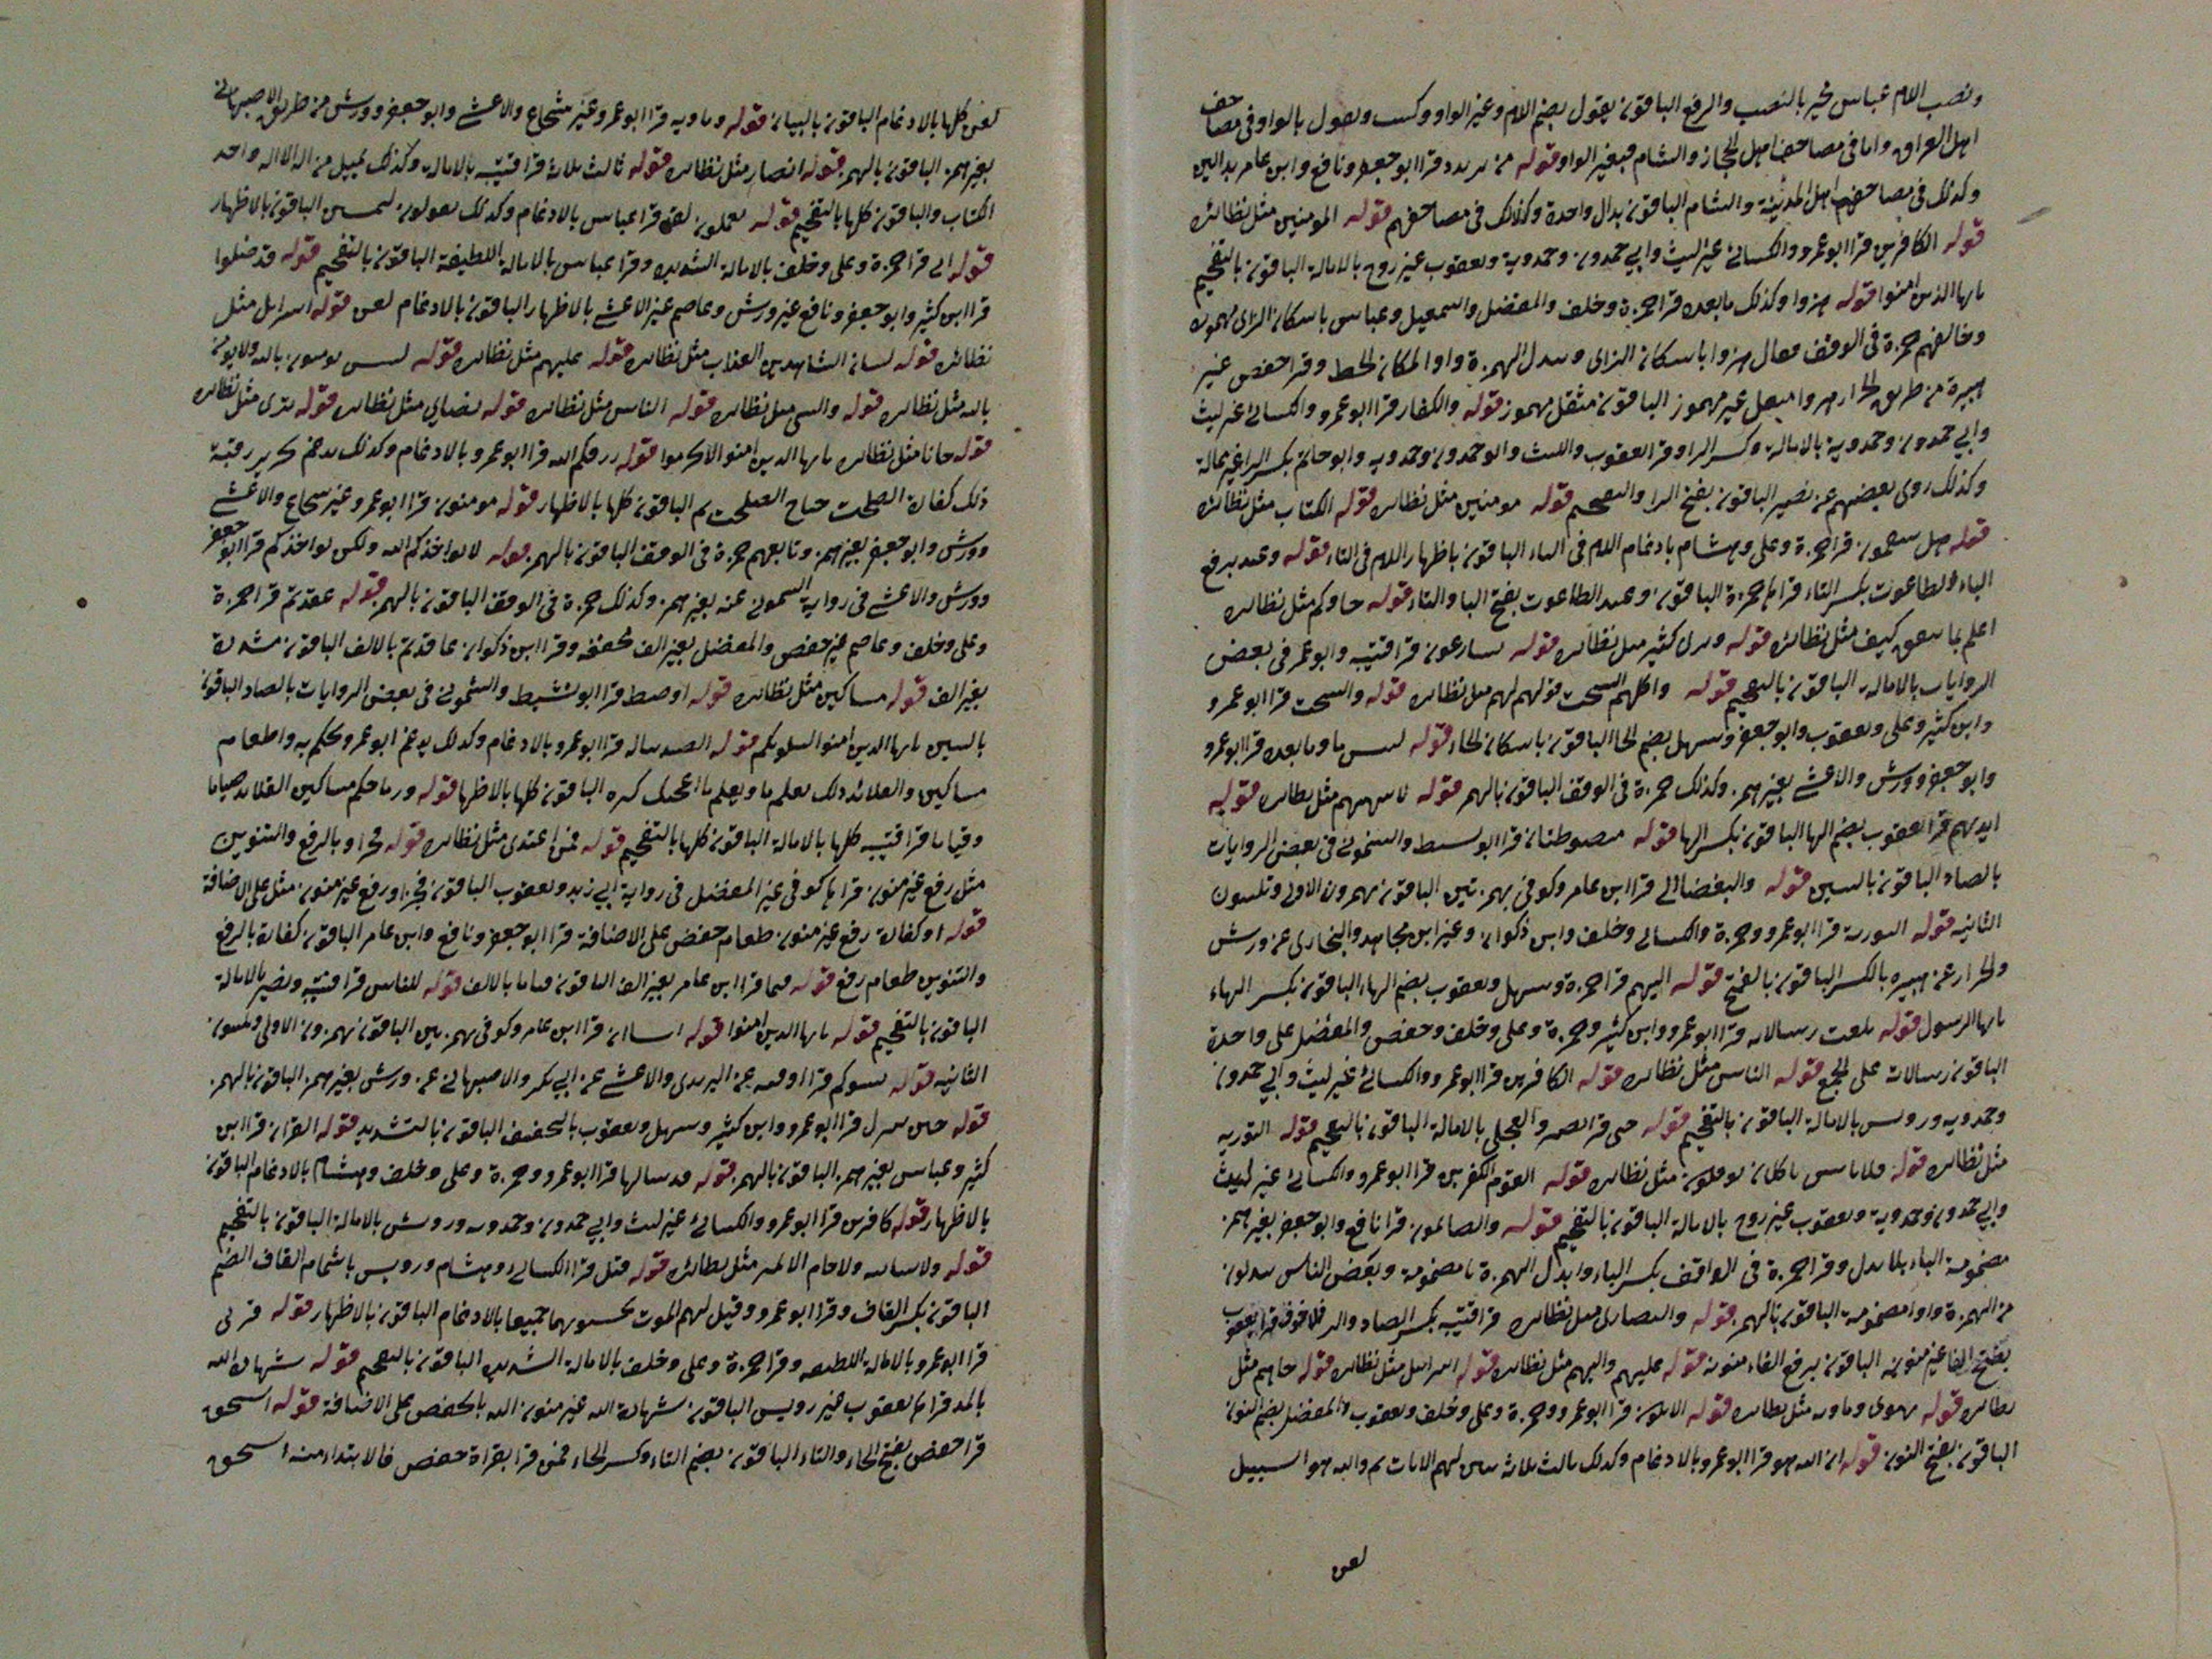 ونصب اللام عباس مخير بالنصب والرفع الباقون يقول بضم اللام وغير الواو وكتب ويقول بالواو في مصاحف
اهل العراق واما في مصاحف اهل الحجاز والشام فبغير الواو قوله من يرتدد قرا ابو جعفر ونافع وابن عامر بدالين
وكذلك في مصاحفهم اهل المدينة والشام الباقون بدال واحدة وكذلك في مصاحفهم قوله المومنين مثل نظائره
قوله الكافرين قرا ابو عمرو والكسائي غير ليث وابي حمدون وحمدوية ويعقوب غير روح بالامالة الباقون بالتفخيم
يايها الذين امنوا قوله هزوا وكذلك ما بعده قرا حمزة وخلف والمفضل واسمعيل وعباس باسكان الزاى مهموز
وخالفهم حمزة في الوقف فقال هزوا باسكان الزاى وبدل الهمزة واوا لمكان الخط وقرا حفص غير
هبيرة من طريق الخزاز هزوا مثقل غير مهموز الباقون مثقل مهموز قوله والكفار قرا ابو عمرو والكسائي غير ليث
وابي حمدون وحمدوية بالامالة وكسر الرا وقرا يعقوب والليث وابو حمدون وحمدويه وابو حاتم بكسر الرا غير ممالة
وكذلك روى بعضهم عن نصير الباقون بفتح الرا والتفخيم قوله مومنين مثل نظائره قوله الكتاب مثل نظائره
قوله هل تنقمون قرا حمزة وعلي وهشام بادغام اللام في التاء الباقون باظهار اللام في التاء قوله وعبد برفع
الباء الطاغوت بكسر التاء قراها حمزة الباقون وعبد الطاغوت بفتح البا والتاء قوله جاوكم مثل نظائره
اعلم بما ينفق كيف مثل نظائره قوله وترى كثير مثل نظائره قوله يسارعون قرا قتيبة وابو عمر في بعض
الروايات بالامالة الباقون بالتفخيم قوله واكلهم السحت قولهم لهم مثل نظائره قوله والسحت قرا ابو عمرو
وابن كثير وعلي ويعقوب وابو جعفر وسهل بضم الحا الباقون باسكان الحاء قوله لبئس ما وما بعده قرا ابو عمرو
وابو جعفر وورش والاعشى بغير همز وكذلك حمزة في الوقف الباقون بالهمز قوله ينهيهم مثل نظائره قوله
ايديهم قرا يعقوب بضم الها الباقون بكسر الها قوله مبصوطتان قرا ابو نشيط والشموني في بعض الروايات
بالصاد الباقون بالسين قوله والبغضا الى قرا ابن عامر وكوفي بهمزتين الباقون يهمزون الاولى ويلينون
الثانيه قوله التورية قرا ابو عمرو وحمزة والكسائي وخلف وابن ذكوان وغير ابن مجاهد والنجاري عن ورش
والخزاز عن هبيره بالكسر الباقون بالفتح قوله اليهم قرا حمزة وسهل ويعقوب بضم الهاء الباقون بكسر الهاء
يايها الرسول قوله بلغت رسالاته قرا ابو عمرو وابن كثير وحمزة وعلي وخلف وحفص والمفضل على واحدة
الباقون رسالات على الجمع قوله الناس مثل نظائره قوله الكافرين قرا ابو عمرو والكسائي غير ليث وابي حمدون
وحمدويه ورويس بالامالة الباقون بالتفخيم قوله حتى قرا نصير والعجلي بالامالة الباقون بالتفخيم قوله التورية
مثل نظائره قوله فلا تاس ياكلان يوفكون مثل نظائره قوله القوم الكفرين قرا ابو عمرو والكسائي غير ليث
وابي حمدون وحمدوية ويعقوب غير روح بالامالة الباقون بالتفخيم قوله والصابون قرا نافع وابو جعفر بغير همز
مضمومة الباء بلا بدل وقرا حمزة في الواقف بكسر الباء وابدال الهمزة يا مضمومة وبعض الناس يبدلون
من الهمزة واوا مضمومة الباقون بالهمز قوله والنصارى مثل نظائره قرا قتيبة بكسر الصاد والر فلا خوف قرا يعقوب
بفتح الفا غير منونه الباقون برفع الفاء منونه قوله عليهم واليهم مثل نظائره قوله اسرايل مثل نظائره قوله جاهم مثل
نظائره قوله تهوى وماوه مثل نظائره قوله الا تكون قرا ابو عمرو وحمزة وعلي وخلف ويعقوب والمفضل بضم النون
الباقون بفتح النون قوله ان الله هو قرا ابو عمرو بالادغام وكذلك ثالث ثلاثة نبين لهم الايات ثم والله هو السبيل
لعن
لعن كلها بالادغام الباقون بالبيان قوله وماويه قرا ابو عمرو غير شجاع والاعشى وابو جعفر وورش من طريق الاصبهاني
بغير همز الباقون بالهمز قوله انصار مثل نظائره قوله ثالث ثلاثة قرا قتيبه بالامالة وكذلك يميل من اله الا اله واحد
الكتاب والباقون كلها بالتفخيم قوله يعملون لعن قرا عباس بالادغام وكذلك يقولون ليمسن الباقون بالاظهار
قوله انى قرا حمزة وعلي وخلف بالامالة الشديده وقرا عباس بالامالة اللطيفة الباقون بالتفخيم قوله قد ضلوا
قرا ابن كثير وابو جعفر ونافع غير ورش وعاصم غير الاعشى بالاظهار الباقون بالادغام لعن قوله اسرايل مثل
نظائره قوله لسان الشاهدين العذاب مثل نظائره قوله عليهم مثل نظائره قوله لبس يومنون بالله ولا يومن
بالله مثل نظائره قوله والنبي مثل نظائره قوله الناس مثل نظائره قوله نصارى مثل نظائره قوله ترى مثل نظائره
قوله جانا مثل نظائره يايها الدين امنوا لا تحرموا قوله رزقكم الله قرا ابو عمرو بالادغام وكذلك يدغم تحرير رقبة
ذلك كفارة الصلحت جناح الصلحت ثم الباقون كلها بالاظهار قوله مومنون قرا ابو عمرو غير شجاع والاعشى
وورش وابو جعفر بغير همز وتابعهم حمزة في الوقف الباقون بالهمز قوله لا يواخذكم الله ولكن يواخذكم قرا ابو جعفر
وورش والاعشى في رواية الشموني عنه بغير همز وكذلك حمزة في الوقف الباقون بالهمز قوله عقدتم قرا حمزة
وعلي وخلف وعاصم غير حفص والمفضل بغير الف مخففه وقرا ابن ذكوان عاقدتم بالالف الباقون مشددة
بغير الف قوله مساكين مثل نظائره قوله اوصط قرا ابو نشيط والشموني في بعض الروايات بالصاد الباقون
بالسين يايها الدين امنوا ليبلونكم قوله الصيد تناله قرا ابو عمرو بالادغام وكذلك يدغم ابو عمرو يحكم به واطعام
مساكين والقلائد ذلك يعلم ما ويعلم ما اعجبك كثره الباقون كلها بالاظهار قوله ورماحكم مساكين القلائد صياما
وقياما قرا قتيبه كلها بالامالة الباقون كلها بالتفخيم قوله فمن اعتدى مثل نظائره قوله فجزاو بالرفع والتنوين
مثل رفع غير منون قراها كوفي غير المفضل في رواية ابي زيد ويعقوب الباقون فجزاو رفع غير منون مثل على الاضافة
قوله او كفارة رفع غير منون طعام حفض على الاضافة قرا ابو جعفر ونافع وابن عامر الباقون كفارة بالرفع
والتنوين طعام رفع قوله قيما قرا ابن عامر بغير الف الباقون قياما بالالف قوله للناس قرا قتيبه ونصير بالامالة
الباقون بالتفخيم قوله يايها الدين امنوا قوله اشيا ان قرا ابن عامر وكوفي بهمزتين الباقون يهمزون الاولى ويلينون
الثانيه قوله تسوكم قرا اوقيه عن اليزيدي والاعشى عن ابي بكر والاصبهاني عن ورش بغير همز الباقون بالهمز
قوله حين ينزل قرا ابو عمرو وابن كثير وسهل ويعقوب بالتخفيف الباقون بالتشديد قوله القران قرا ابن
كثير وعباس بغير همز الباقون بالهمز قوله قد سالها قرا ابو عمرو وحمزة وعلي وخلف وهشام بالادغام الباقون
بالاظهار قوله كافرين قرا ابو عمرو والكسائي غير ليث وابي حمدون وحمدويه ورويس بالامالة الباقون بالتفخيم
قوله ولا سائبه ولا حام مثل نظائره قوله قيل قرا الكسائي وهشام ورويس باشمام القاف الضم
الباقون بكسر القاف وقرا ابو عمرو وقيل لهم الموت تحبسونهما جميعا بالادغام الباقون بالاظهار قوله قربى
قرا ابو عمرو بالامالة اللطيفه وقرا حمزة وعلي وخلف بالامالة الشديده الباقون بالتفخيم قوله شهادة الله
بالمد قراها يعقوب غير رويس الباقون شهادة الله غير منون الله بالخفض على الاضافة قوله استحق
قرا حفص بفتح الحاء والتاء الباقون بضم التاء وكسر الحاء فمن قرا بقراة حفص فالابتداء منه استحق